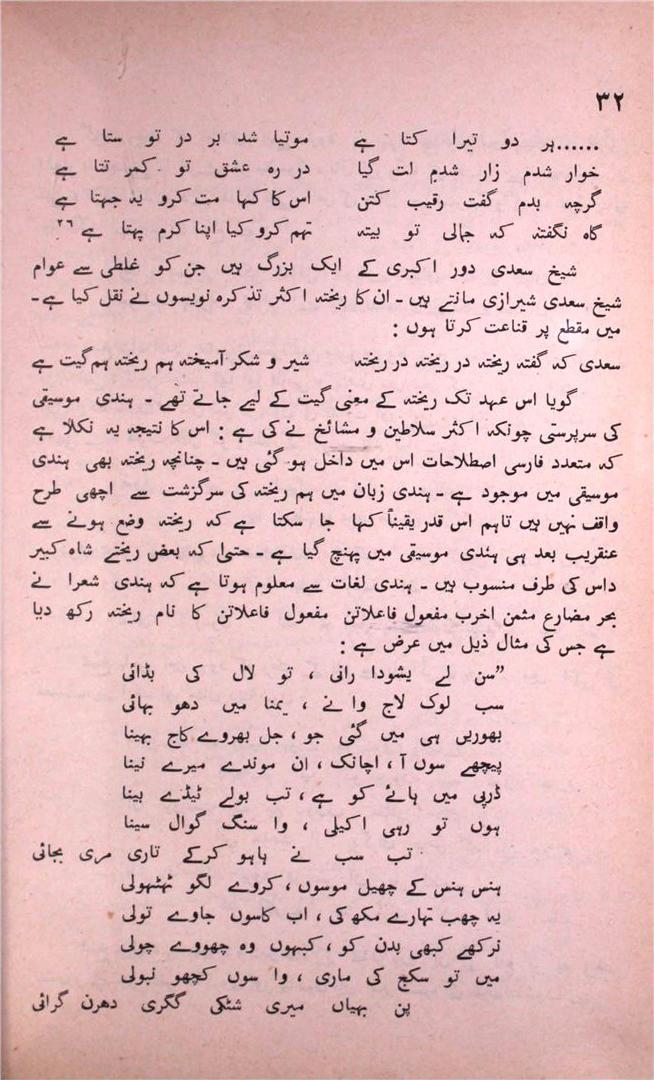 ۳۲
......ہر دو تیرا کتا ہے موتیا شد بر در تو ستا ہے
خوار شدم زار شدم لت گیا در رہ عشق تو کمر تتا ہے
گرچہ بدم گفت رقیب کتن اس کا کہا مت کرو یہ جہتا ہے
گاہ نگفتہ کہ جالی تو بیتہ تہم کرو کیا اپنا کرم پہتا ہے ۲۶
شیخ سعدی دور اکبری کے ایک بزرگ ہیں جن کو غلطی سے عوام
شیخ سعدی شیرازی مانتے ہیں ۔ ان کا ریختہ اکثر تذکرہ نویسوں نے نقل کیا ہے ۔
میں مقطع پر قناعت کرتا ہوں :
سعدی کہ گفتہ ریختہ در ریختہ در ریختہ شیر و شکر آمیختہ ہم ریختہ ہم گیت ہے
گویا اس عہد تک ریختہ کے معنی گیت کے لیے جاتے تھے ۔ ہندی موسیقی
کی سرپرستی چونکہ اکثر سلاطین و مشائخ نے کی ہے : اس کا نتیجہ یہ نکلا ہے
کہ متعدد فارسی اصطلاحات اس میں داخل ہو گئی ہیں ۔ چنانچہ ریختہ بھی ہندی
موسیقی میں موجود ہے ۔ ہندی زبان میں ہم ریختہ کی سرگزشت سے اچھی طرح
واقف نہیں ہیں تاہم اس قدر یقیناً کہا جا سکتا ہے کہ ریختہ وضع ہونے سے
عنقریب بعد ہی ہندی موسیقی میں پہنچ گیا ہے ۔ حتیٰ کہ بعض ریختے شاہ کبیر
داس کی طرف منسوب ہیں ۔ ہندی لغات سے معلوم ہوتا ہے کہ ہندی شعرا نے
بحر مضارع مثمن اخرب مفعول فاعلاتن مفعول فاعلاتن کا نام ریختہ رکھ دیا
ہے جس کی مثال ذیل میں عرض ہے :
”سن لے یشودا رانی ، تو لال کی بڈائی
سب لوک لاج وا نے ، یمنا میں دھو بہائی
بھوریں ہی میں گئی جو ، جل بھروے کاج بھینا
پیچھے سوں آ ، اچانک ، ان موندے میرے نینا
ڈرپی میں ہائے کو ہے ، تب بولے ٹیڈے بینا
ہوں تو رہی اکیلی ، وا سنگ گوال سینا
تب سب نے ہاہو کرکے تاری مری بجائی
ہنس ہنس کے چھیل موسوں ، کروے لگو ٹھٹھولی
یہ چھب تہارے مکھ کی ، اب کاسوں جاوے تولی
نرکھے کبھی بدن کو ، کبہوں وہ چھووے چولی
میں تو سکج کی ماری ، وا سوں کچھو نبولی
پن بہیاں میری شٹکی گگری دھرن گرائی